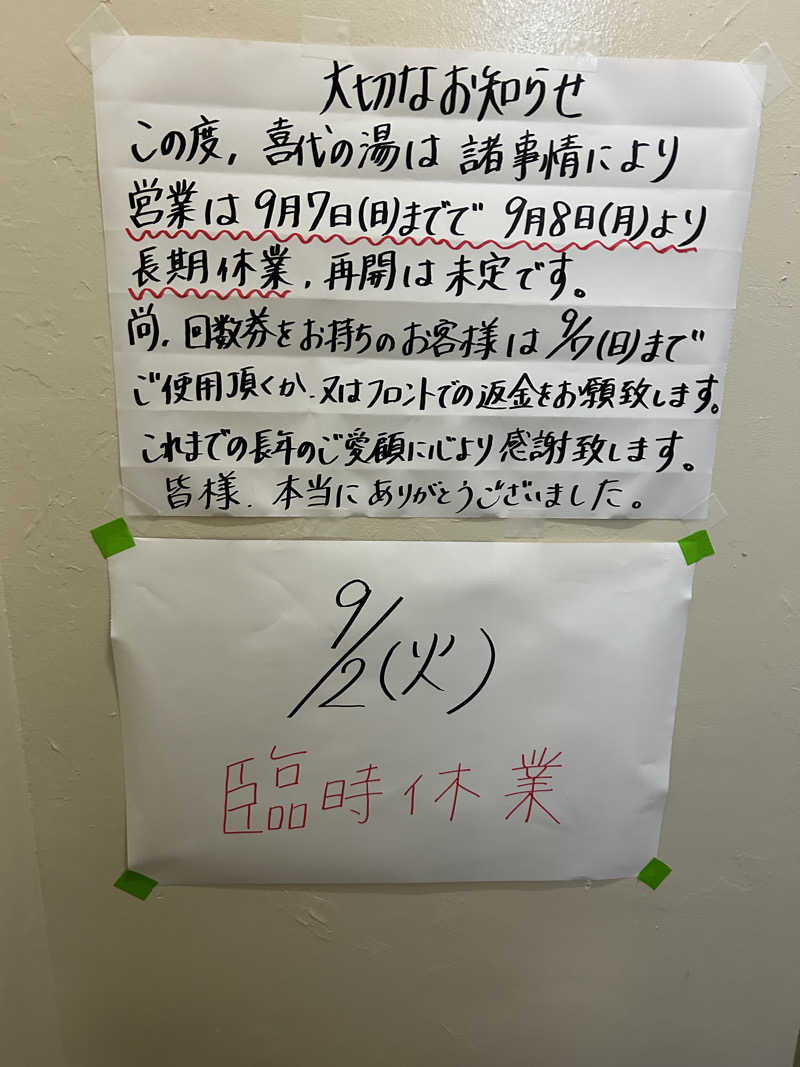 大切なお知らせ
この度,喜代の湯は諸事情により
営業は9月7日(日)までで 9月8日(月)より
長期休業,再開は未定です。
尚,回数券をお持ちのお客様は9/7(日)まで
ご使用頂くか、又はフロントでの返金をお願致します。
これまでの長年のご愛顧に心より感謝致します。
皆様、本当にありがとうございました。
9/2(火)
臨時休業